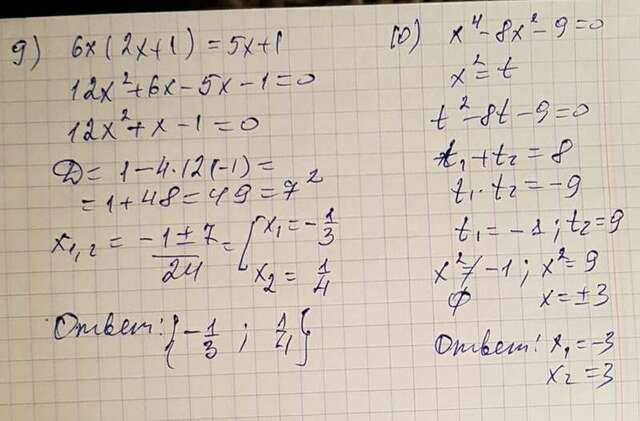 9) 6x(2x+1)=5x+1
12x²+6x-5x-1=0
12x²+x-1=0
D=1-4·12(-1)=
=1+48=49=7²
x₁,₂ = -1±7/24 = [x₁=-1/3
x₂=1/4
Ответ: {-1/3 ; 1/4}
10) x⁴-8x²-9=0
x²=t
t²-8t-9=0
t₁+t₂=8
t₁·t₂=-9
t₁=-1; t₂=9
x²≠-1; x²=9
∅ x=±3
Ответ: x₁=-3
x₂=3